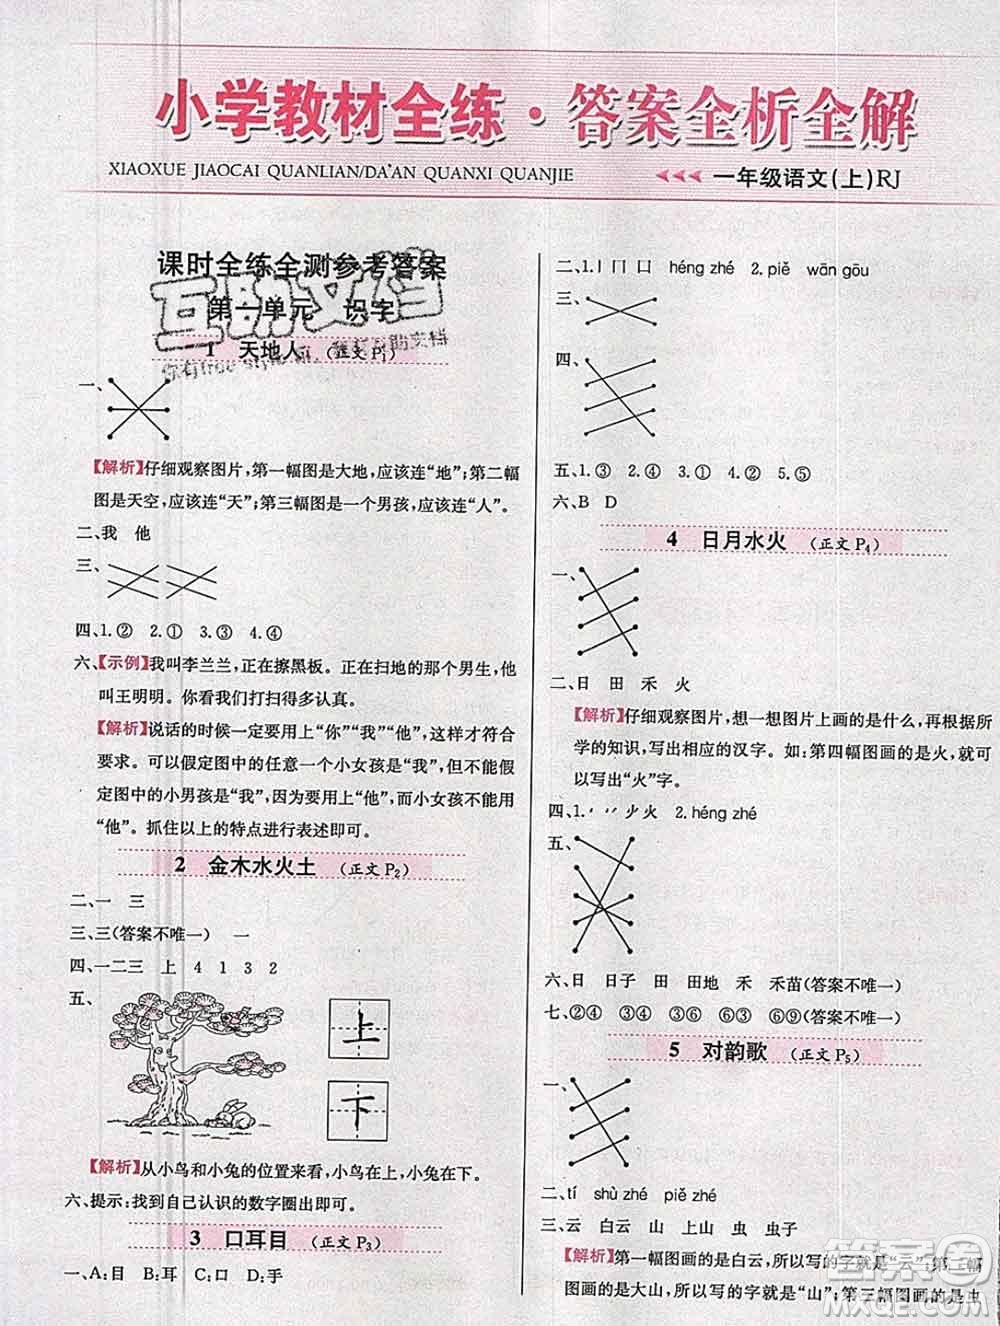 小学教材全练·答案全析全解
XIAOXUE JIAOCAI QUANLIAN/DA'AN QUANXI QUANJIE
一年级语文(上)RJ
课时全练全测参考答案
第一单元 识字
1 天地人 (正文 P1)
一、
【解析】仔细观察图片,第一幅图是大地,应该连“地”;第二幅
图是天空,应该连“天”;第三幅图是一个男孩,应该连“人”。
二、我 他
三、
四、1.② 2.① 3.③ 4.④
六、【示例】我叫李兰兰,正在擦黑板。正在扫地的那个男生,他
叫王明明。你看我们打扫得多认真。
【解析】说话的时候一定要用上“你”“我”“他”,这样才符合
要求。可以假定图中的任意一个小女孩是“我”,但不能假
定图中的小男孩是“我”,因为要用上“他”,而小女孩不能用
“他”。抓住以上的特点进行表述即可。
2 金木水火土 (正文 P2)
二、一 三
三、三(答案不唯一) 一
四、一二三 上 4 1 3 2
五、
上
下
【解析】从小鸟和小兔的位置来看,小鸟在上,小兔在下。
六、提示:找到自己认识的数字圈出即可。
3 口耳目 (正文 P3)
一、A:目 B:耳 C:口 D:手
二、1.丨 冂 口 héng zhé 2.piě wān gōu
三、
四、
五、1.③ 2.④ 3.① 4.② 5.⑤
六、B D
4 日月水火 (正文 P4)
一、
二、日 田 禾 火
【解析】仔细观察图片,想一想图片上画的是什么,再根据所
学的知识,写出相应的汉字。如:第四幅图画的是火,就可
以写出“火”字。
四、1. 火 火 2.héng zhé
五、
六、日 日子 田 田地 禾 禾苗(答案不唯一)
七、②④ ③④ ⑥③ ⑥⑨(答案不唯一)
5 对韵歌 (正文 P5)
一、
二、tí shù zhé piě zhé
三、云 白云 山 上山 虫 虫子
【解析】第一幅图画的是白云,所以写的字就是“云”;第二幅
图画的是大山,所以写的字就是“山”;第三幅图画的是虫
答案圈
MXQE.COM